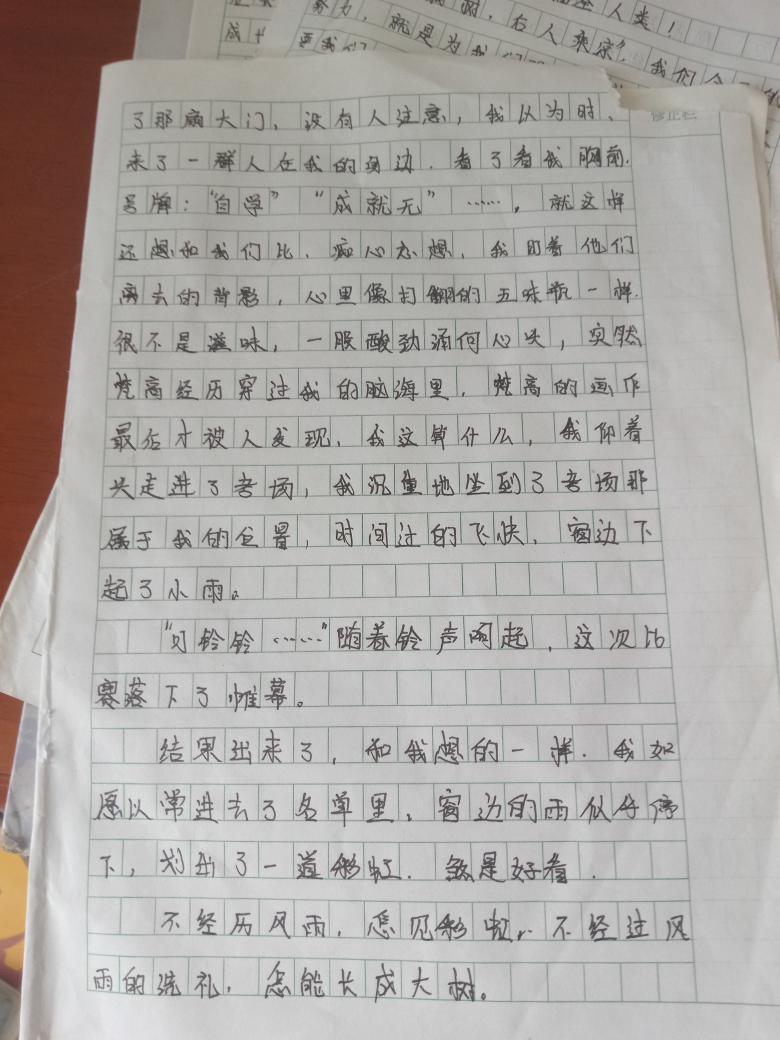 人类！
树，古人乘凉”，我们今
努力，就是为我们
成
了那扇大门，没有人注意，我以为时、
来了一群人在我的身边．看了看我胸前．
号牌：“自学”“成就无”……，就这样
还想和我们比．痴心忘想．我盯着他们
离去的背影，心里像打翻的五味瓶一样．
很不是滋味，一股酸劲涌向心头，突然
梵高经历穿过我的脑海里．梵高的画作
最后才被人发现．我这算什么，我仰着
头走进了考场，我沉重地坐到了考场那
属于我的位置，时间过的飞快．窗边下
起了小雨。
“叮铃铃……”随着铃声响起，这次比
赛落下了帷幕。
结果出来了，和我想的一样．我如
愿以常进去了名单里．窗边的雨似乎停
下，划出了一道彩虹．煞是好看．
不经历风雨，怎见彩虹，不经过风
雨的洗礼，怎能长成大树。